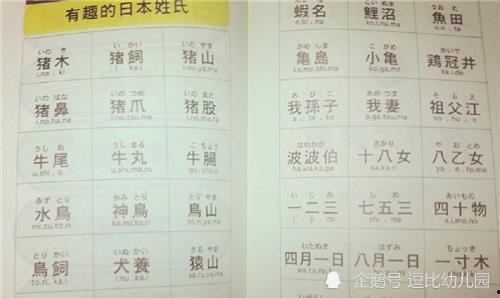 有趣的日本姓氏
いの き い かい いの やま
猪木 猪飼 猪山
i.no . ki i . ka.i i.no.ya.ma
いの はな いの つめ いの また
猪鼻 猪爪 猪股
i.no.ha.na i.no.tsu.me i.no.ma.ta
うし お うし まる ご ちょう
牛尾 牛丸 牛腸
u.shi . o u.shi.ma.ru go.cho.o
みず とり かみ とり とり やま
水鳥 神鳥 鳥山
mi.zu.to.ri ka.mi.to.ri to.ri.ya.ma
とり かい いぬ かい さる やま
鳥飼 犬養 猿山
蝦名 鯉沼 魚田
e . bi . na ko.i.nu.ma
かめ しま こ がめ かいで
亀島 小亀 鶏冠井
ka.me.shi.ma ko.ga.me ka.i.de
あ び こ わが つま そ ふ え
我孫子 我妻 祖父江
a . bi . ko so . hu . e
はわかが さかり やおとめ
波波伯 十八女 八乙女
ha.wa.ka.ga sa.ka.ri ya . o . to.me
い じ み し め あいもの
一二三 七五三 四十物
i . ji . mi shi . me a.i.mo.no
わたぬき はずみ ちょっき
四月一日 八月一日 一寸木
wa.ta.nu.ki
企鹅号 逗比幼儿园